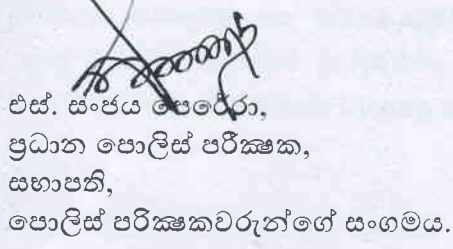 එස්. සංජය පෙරේරා,
ප්‍රධාන පොලිස් පරීක්ෂක,
සභාපති,
පොලිස් පරික්ෂකවරුන්ගේ සංගමය.